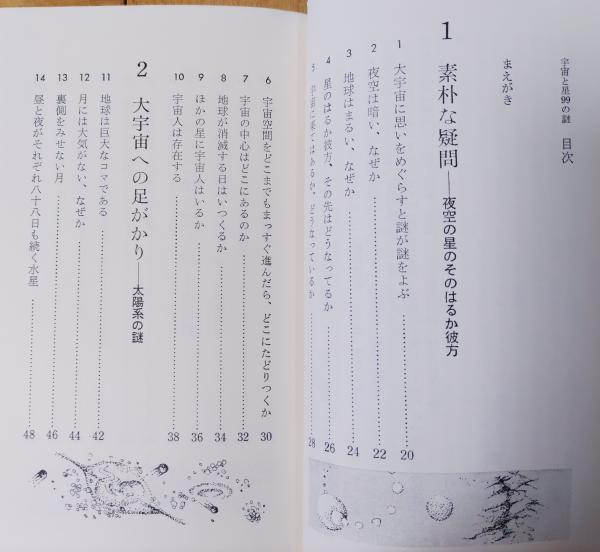 宇宙と星99の謎 目次
まえがき
1 素朴な疑問——夜空の星のそのはるか彼方
1 大宇宙に思いをめぐらすと謎が謎をよぶ 20
2 夜空は暗い、なぜか 22
3 地球はまるい、なぜか 24
4 星のはるか彼方、その先はどうなってるか 26
5 宇宙に果てはあるか、どうなっているか 28
6 宇宙空間をどこまでもまっすぐ進んだら、どこにたどりつくか 30
7 宇宙の中心はどこにあるのか 32
8 地球が消滅する日はいつくるか 34
9 ほかの星に宇宙人はいるか 36
10 宇宙人は存在する 38
2 大宇宙への足がかり——太陽系の謎
11 地球は巨大なコマである 42
12 月には大気がない、なぜか 44
13 裏側をみせない月 46
14 昼と夜がそれぞれ八十八日も続く水星 48